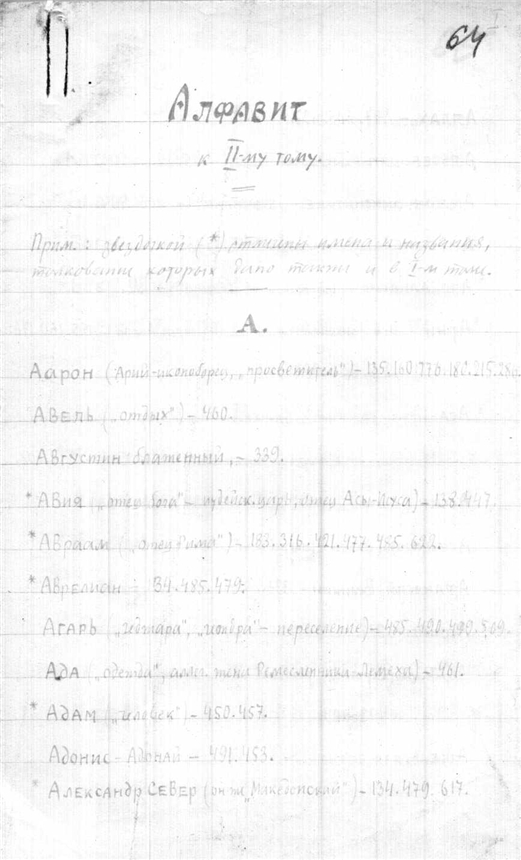 64
Алфавит
к II-му тому.
Прим.: звездочкой (*) отмечены имена и названия,
толкование которых было и в I-м томе.
А.
Аарон („Арий-иконоборец, „просветитель“) – 135.160.176.182.215.
Авель („отдых“) – 460.
Августин блаженный, – 339.
* Авия („отец бога“ – иудейск. царь, отец Асы-Исуса) – 138.447.
* Авраам („отец Рима“) – 183.316.421.477.485.622.
* Аврелиан – 34.485.479.
Агарь („ – переселение) – 485.490.499.509.
Ада („одежда“, аллег. жена Ремесленника-Лемеха) – 461.
* Адам („человек“) – 450.457.
Адонис – Адонай – 491.453.
* Александр Север (он же „Македонский“) – 134.479.617.